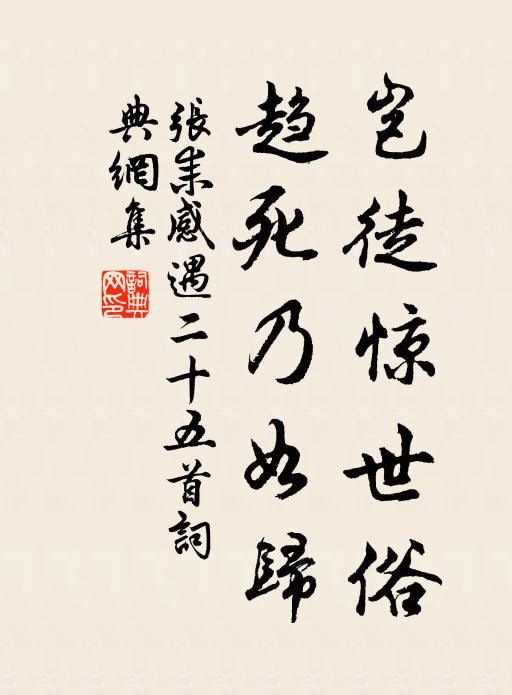 岂徒惊世俗
趋死乃如歸
張耒感遇二十五首詞
典網集
詞典
网印